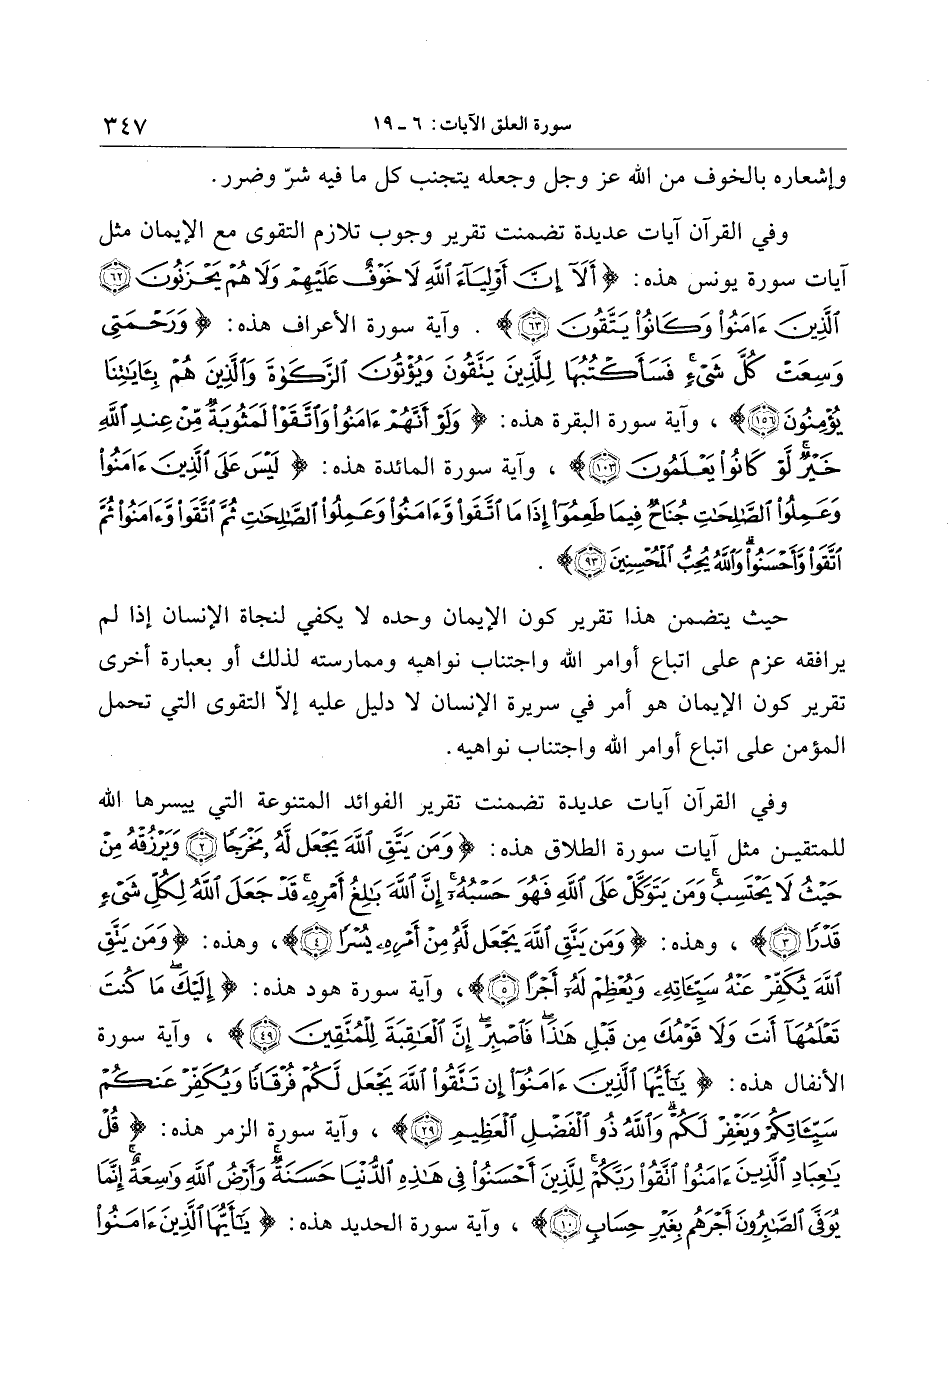 سورة العلق الآيات: ٦ ـ ١٩ ٣٤٧
وإشعاره بالخوف من الله عز وجل وجعله يتجنب كل ما فيه شرّ وضرر.
وفي القرآن آيات عديدة تضمنت تقرير وجوب تلازم التقوى مع الإيمان مثل
آيات سورة يونس هذه: ﴿ أَلَآ إِنَّ أَوْلِيَآءَ ٱللَّهِ لَا خَوْفٌ عَلَيْهِمْ وَلَا هُمْ يَحْزَنُونَ ٦٢
ٱلَّذِينَ ءَامَنُوا۟ وَكَانُوا۟ يَتَّقُونَ ٦٣ ﴾ . وآية سورة الأعراف هذه: ﴿ وَرَحْمَتِى
وَسِعَتْ كُلَّ شَىْءٍ فَسَأَكْتُبُهَا لِلَّذِينَ يَتَّقُونَ وَيُؤْتُونَ ٱلزَّكَوٰةَ وَٱلَّذِينَ هُم بِـَٔايَـٰتِنَا
يُؤْمِنُونَ ١٥٦ ﴾ ، وآية سورة البقرة هذه: ﴿ وَلَوْ أَنَّهُمْ ءَامَنُوا۟ وَٱتَّقَوْا۟ لَمَثُوبَةٌ مِّنْ عِندِ ٱللَّهِ
خَيْرٌ لَّوْ كَانُوا۟ يَعْلَمُونَ ١٠٣ ﴾ ، وآية سورة المائدة هذه: ﴿ لَيْسَ عَلَى ٱلَّذِينَ ءَامَنُوا۟
وَعَمِلُوا۟ ٱلصَّـٰلِحَـٰتِ جُنَاحٌ فِيمَا طَعِمُوٓا۟ إِذَا مَا ٱتَّقَوا۟ وَّءَامَنُوا۟ وَعَمِلُوا۟ ٱلصَّـٰلِحَـٰتِ ثُمَّ ٱتَّقَوا۟ وَّءَامَنُوا۟ ثُمَّ
ٱتَّقَوا۟ وَّأَحْسَنُوا۟ وَٱللَّهُ يُحِبُّ ٱلْمُحْسِنِينَ ٩٣ ﴾ .
حيث يتضمن هذا تقرير كون الإيمان وحده لا يكفي لنجاة الإنسان إذا لم
يرافقه عزم على اتباع أوامر الله واجتناب نواهيه وممارسته لذلك أو بعبارة أخرى
تقرير كون الإيمان هو أمر في سريرة الإنسان لا دليل عليه إلاّ التقوى التي تحمل
المؤمن على اتباع أوامر الله واجتناب نواهيه.
وفي القرآن آيات عديدة تضمنت تقرير الفوائد المتنوعة التي ييسرها الله
للمتقين مثل آيات سورة الطلاق هذه: ﴿ وَمَن يَتَّقِ ٱللَّهَ يَجْعَل لَّهُۥ مَخْرَجًا ٢ وَيَرْزُقْهُ مِنْ
حَيْثُ لَا يَحْتَسِبُ وَمَن يَتَوَكَّلْ عَلَى ٱللَّهِ فَهُوَ حَسْبُهُۥٓ إِنَّ ٱللَّهَ بَـٰلِغُ أَمْرِهِۦ قَدْ جَعَلَ ٱللَّهُ لِكُلِّ شَىْءٍ
قَدْرًا ٣ ﴾ ، وهذه: ﴿ وَمَن يَتَّقِ ٱللَّهَ يَجْعَل لَّهُۥ مِنْ أَمْرِهِۦ يُسْرًا ٤ ﴾، وهذه: ﴿ وَمَن يَتَّقِ
ٱللَّهَ يُكَفِّرْ عَنْهُ سَيِّـَٔاتِهِۦ وَيُعْظِمْ لَهُۥٓ أَجْرًا ٥ ﴾، وآية سورة هود هذه: ﴿ إِلَيْكَ مَا كُنتَ
تَعْلَمُهَآ أَنتَ وَلَا قَوْمُكَ مِن قَبْلِ هَـٰذَا فَٱصْبِرْ إِنَّ ٱلْعَـٰقِبَةَ لِلْمُتَّقِينَ ٤٩ ﴾ ، وآية سورة
الأنفال هذه: ﴿ يَـٰٓأَيُّهَا ٱلَّذِينَ ءَامَنُوٓا۟ إِن تَتَّقُوا۟ ٱللَّهَ يَجْعَل لَّكُمْ فُرْقَانًا وَيُكَفِّرْ عَنكُمْ
سَيِّـَٔاتِكُمْ وَيَغْفِرْ لَكُمْ وَٱللَّهُ ذُو ٱلْفَضْلِ ٱلْعَظِيمِ ٢٩ ﴾ ، وآية سورة الزمر هذه: ﴿ قُلْ
يَـٰعِبَادِ ٱلَّذِينَ ءَامَنُوا۟ ٱتَّقُوا۟ رَبَّكُمْ لِلَّذِينَ أَحْسَنُوا۟ فِى هَـٰذِهِ ٱلدُّنْيَا حَسَنَةٌ وَأَرْضُ ٱللَّهِ وَٰسِعَةٌ إِنَّمَا
يُوَفَّى ٱلصَّـٰبِرُونَ أَجْرَهُم بِغَيْرِ حِسَابٍ ١٠ ﴾ ، وآية سورة الحديد هذه: ﴿ يَـٰٓأَيُّهَا ٱلَّذِينَ ءَامَنُوا۟